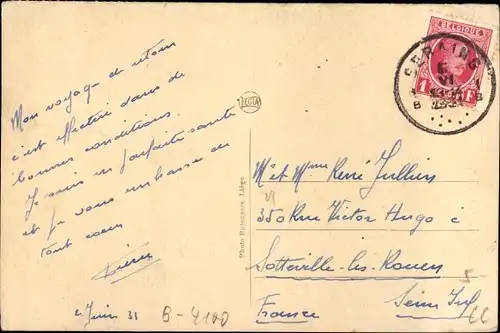 Mon voyage de retour
c'est effectué dans de
bonnes conditions.
Je suis en parfaite santé
et je vous embrasse de
tout cœur
2 Juin 31
B-4100
Photo Belge, Liége
BELGIQUE
1 F
SERAING
1
B B
Mr et Mme René Jullien
350 Rue Victor Hugo
Sotteville-les-Rouen
France Seine Inf